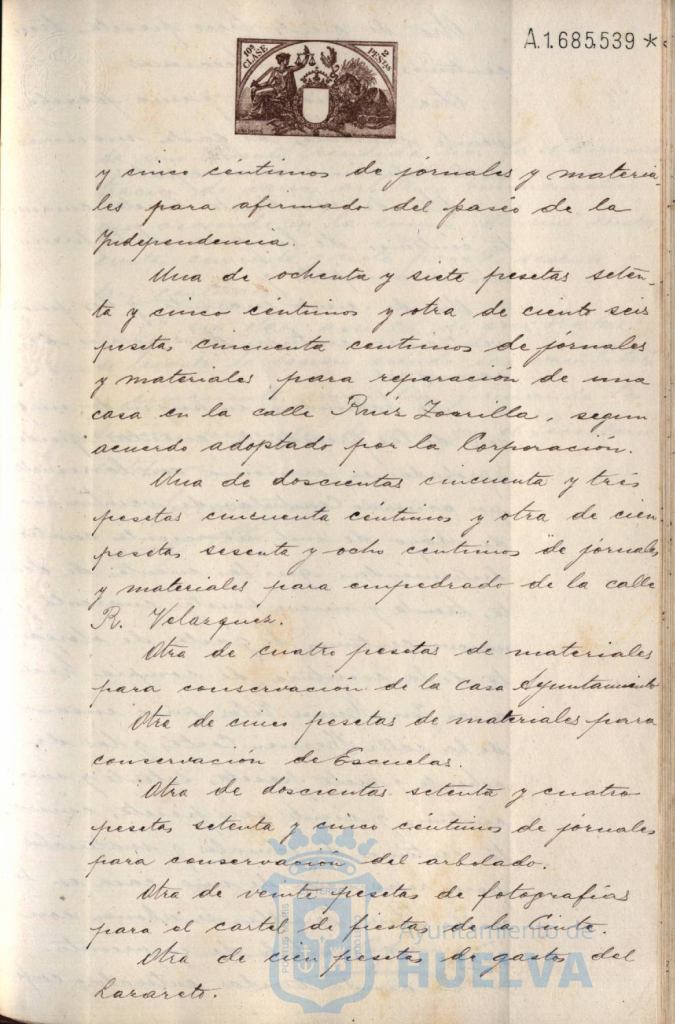 10ª CLASE
2 PESETAS
A.1.685.539 *
y cinco céntimos de jornales y materia-
les para afirmado del paseo de la
Independencia.
Una de ochenta y siete pesetas seten-
ta y cinco céntimos y otra de ciento seis
pesetas cincuenta centimos de jornales
y materiales para reparación de una
casa en la calle Ruiz Zorrilla, segun
acuerdo adoptado por la Corporación.
Una de doscientas cincuenta y tres
pesetas cincuenta céntimos y otra de cien
pesetas sesenta y ocho céntimos de jornales
y materiales para empedrado de la calle
R. Velazquez.
Otra de cuatro pesetas de materiales
para conservación de la Casa Ayuntamiento
Otra de cinco pesetas de materiales para
conservación de Escuelas.
Otra de doscientas setenta y cuatro
pesetas setenta y cinco céntimos de jornales
para conservación del arbolado.
Otra de veinte pesetas de fotografías
para el cartel de fiestas de la Cinta.
Otra de cien pesetas de gastos del
Lazareto.
Ayuntamiento de
HUELVA